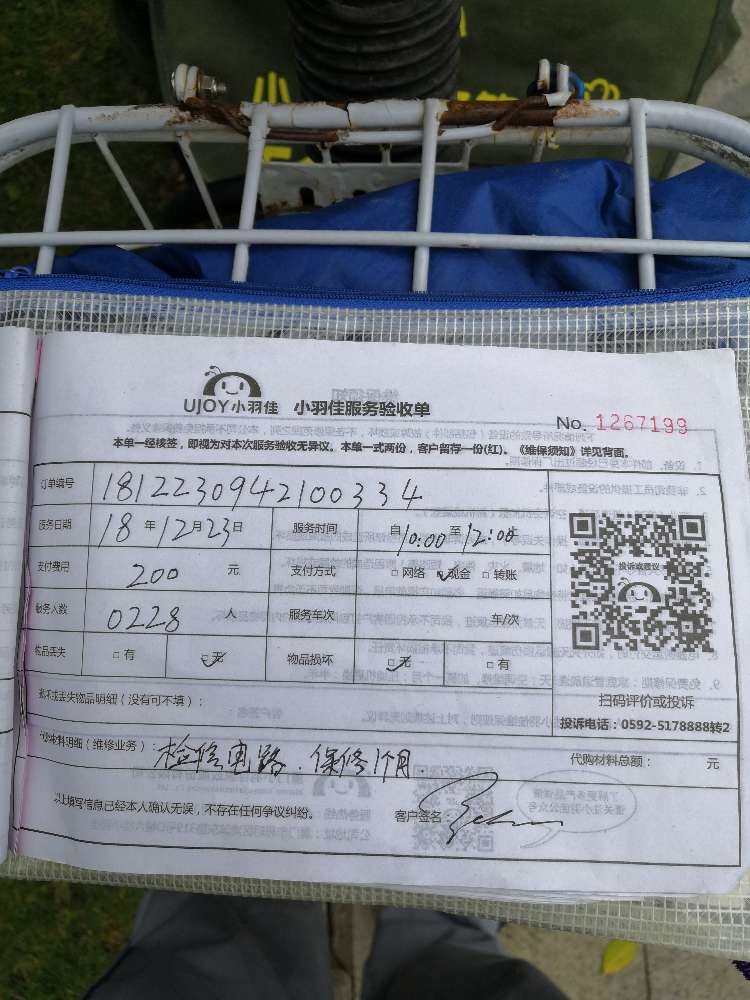 UJOY小羽佳 小羽佳服务验收单
No. 1267199
本单一经核签，即视为对本次服务验收无异议。本单一式两份，客户留存一份(红)。《维保须知》详见背面。
订单编号 1812230942100334
服务日期 18 年 12 月 23 日 服务时间 自 10:00 至 12:00
支付费用 200 元 支付方式 □网络 现金 □转账
服务人数 0228 人 服务车次 车/次
物品丢失 □有 □无 物品损坏 □无 □有
投诉或建议
扫码评价或投诉
投诉电话：0592-5178888转2
损坏或丢失物品明细（没有可不填）：
材料明细（维修业务）：检修电路．保修1个月 代购材料总额： 元
以上填写信息已经本人确认无误，不存在任何争议纠纷。 客户签名：